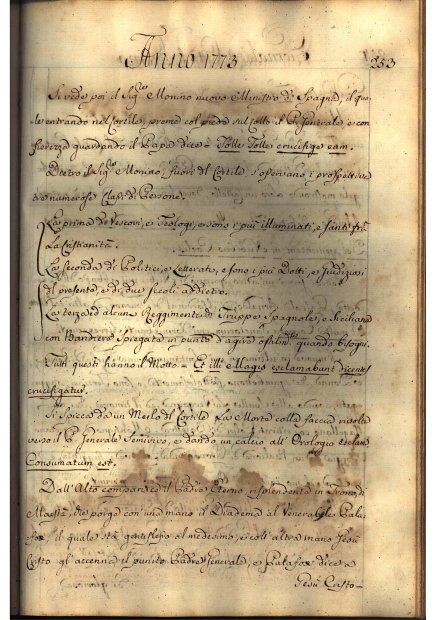 Anno 1773
253
Si vede poi il Sig.re Monino nuovo Ministro di Spagna, il qua-
le entrando nel Cortile, preme col piede sul collo il P. Generale e con
fierezza guardando il Papa dice = Tolle Tolle crucifige eam.
Dietro il Sig.re Monino, fuori del Cortile si
tre numerose Classi di Persone.
La prima di Vescovi, e Teologi, e sono i più illuminati, e santi
La Cristianità.
La seconda di Politici, e Letterati, e sono i più Dotti, e Giudiziosi
del presente, e di due secoli addietro.
La terza ed alcune Reggimenti di Truppe Spagnole, e Siciliane
con Bandiere spiegate in punto d'agire quando bisogni.
Tutti questi hanno il Motto = Et illi Magis exclamabant dicentes
crucifigatur.
Si spicca da un Merlo del Cortile La Morte colla faccia rivolta
verso il P. Generale Semivivo, e dando un calcio all' Orologio esclama
Consumatum est.
Dall' Alto comparisce il Padre Eterno risplendente in Trono di
Maestà che porge con una mano il Diadema al Venerabile Pala-
fox, il quale stà genuflesso al medesimo, e coll' altra mano Jesù
Cristo gl' accenna il punito Padre Generale, e Palafox dice a
Gesù Cristo -